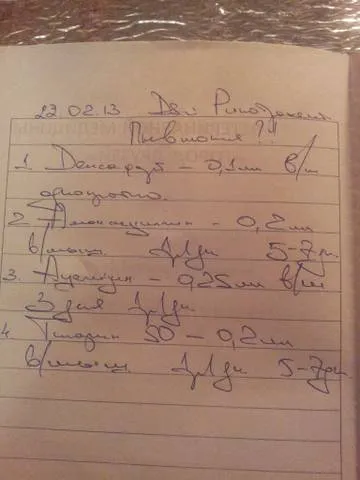 22.02.13 Д-з: Ринотрахеит.
Пневмония ?!!
1. Дексафорт – 0,1 мл в/м
однократно.
2. Амоксициллин – 0,2 мл
в/мыш. 1р/дн 5-7 дн.
3. – 0,25 мл в/м
3 дня 1р/дн.
4. 50 – 0,2 мл
в/мыш 1р/дн. 5-7 дн